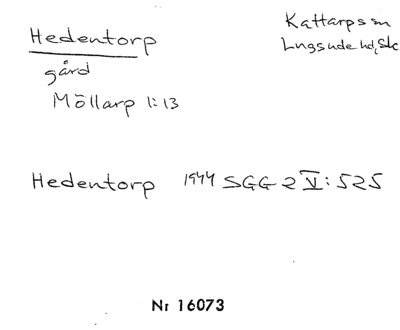 Hedentorp
gård
Möllarp 1:13
Kattarps sn
Luggude hd, Sk
Hedentorp 1944 SGG 2 V: 525
Nr 16073